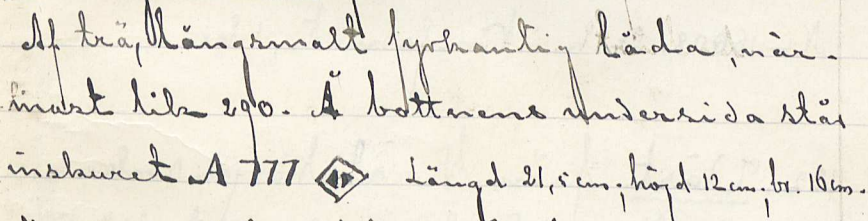 Af trä, långsmalt fyrkantig låda, när-
mast lik 290. Å bottnens undersida står
inskuret A 777 Längd 21,5 cm; höjd 12 cm; br. 16 cm.